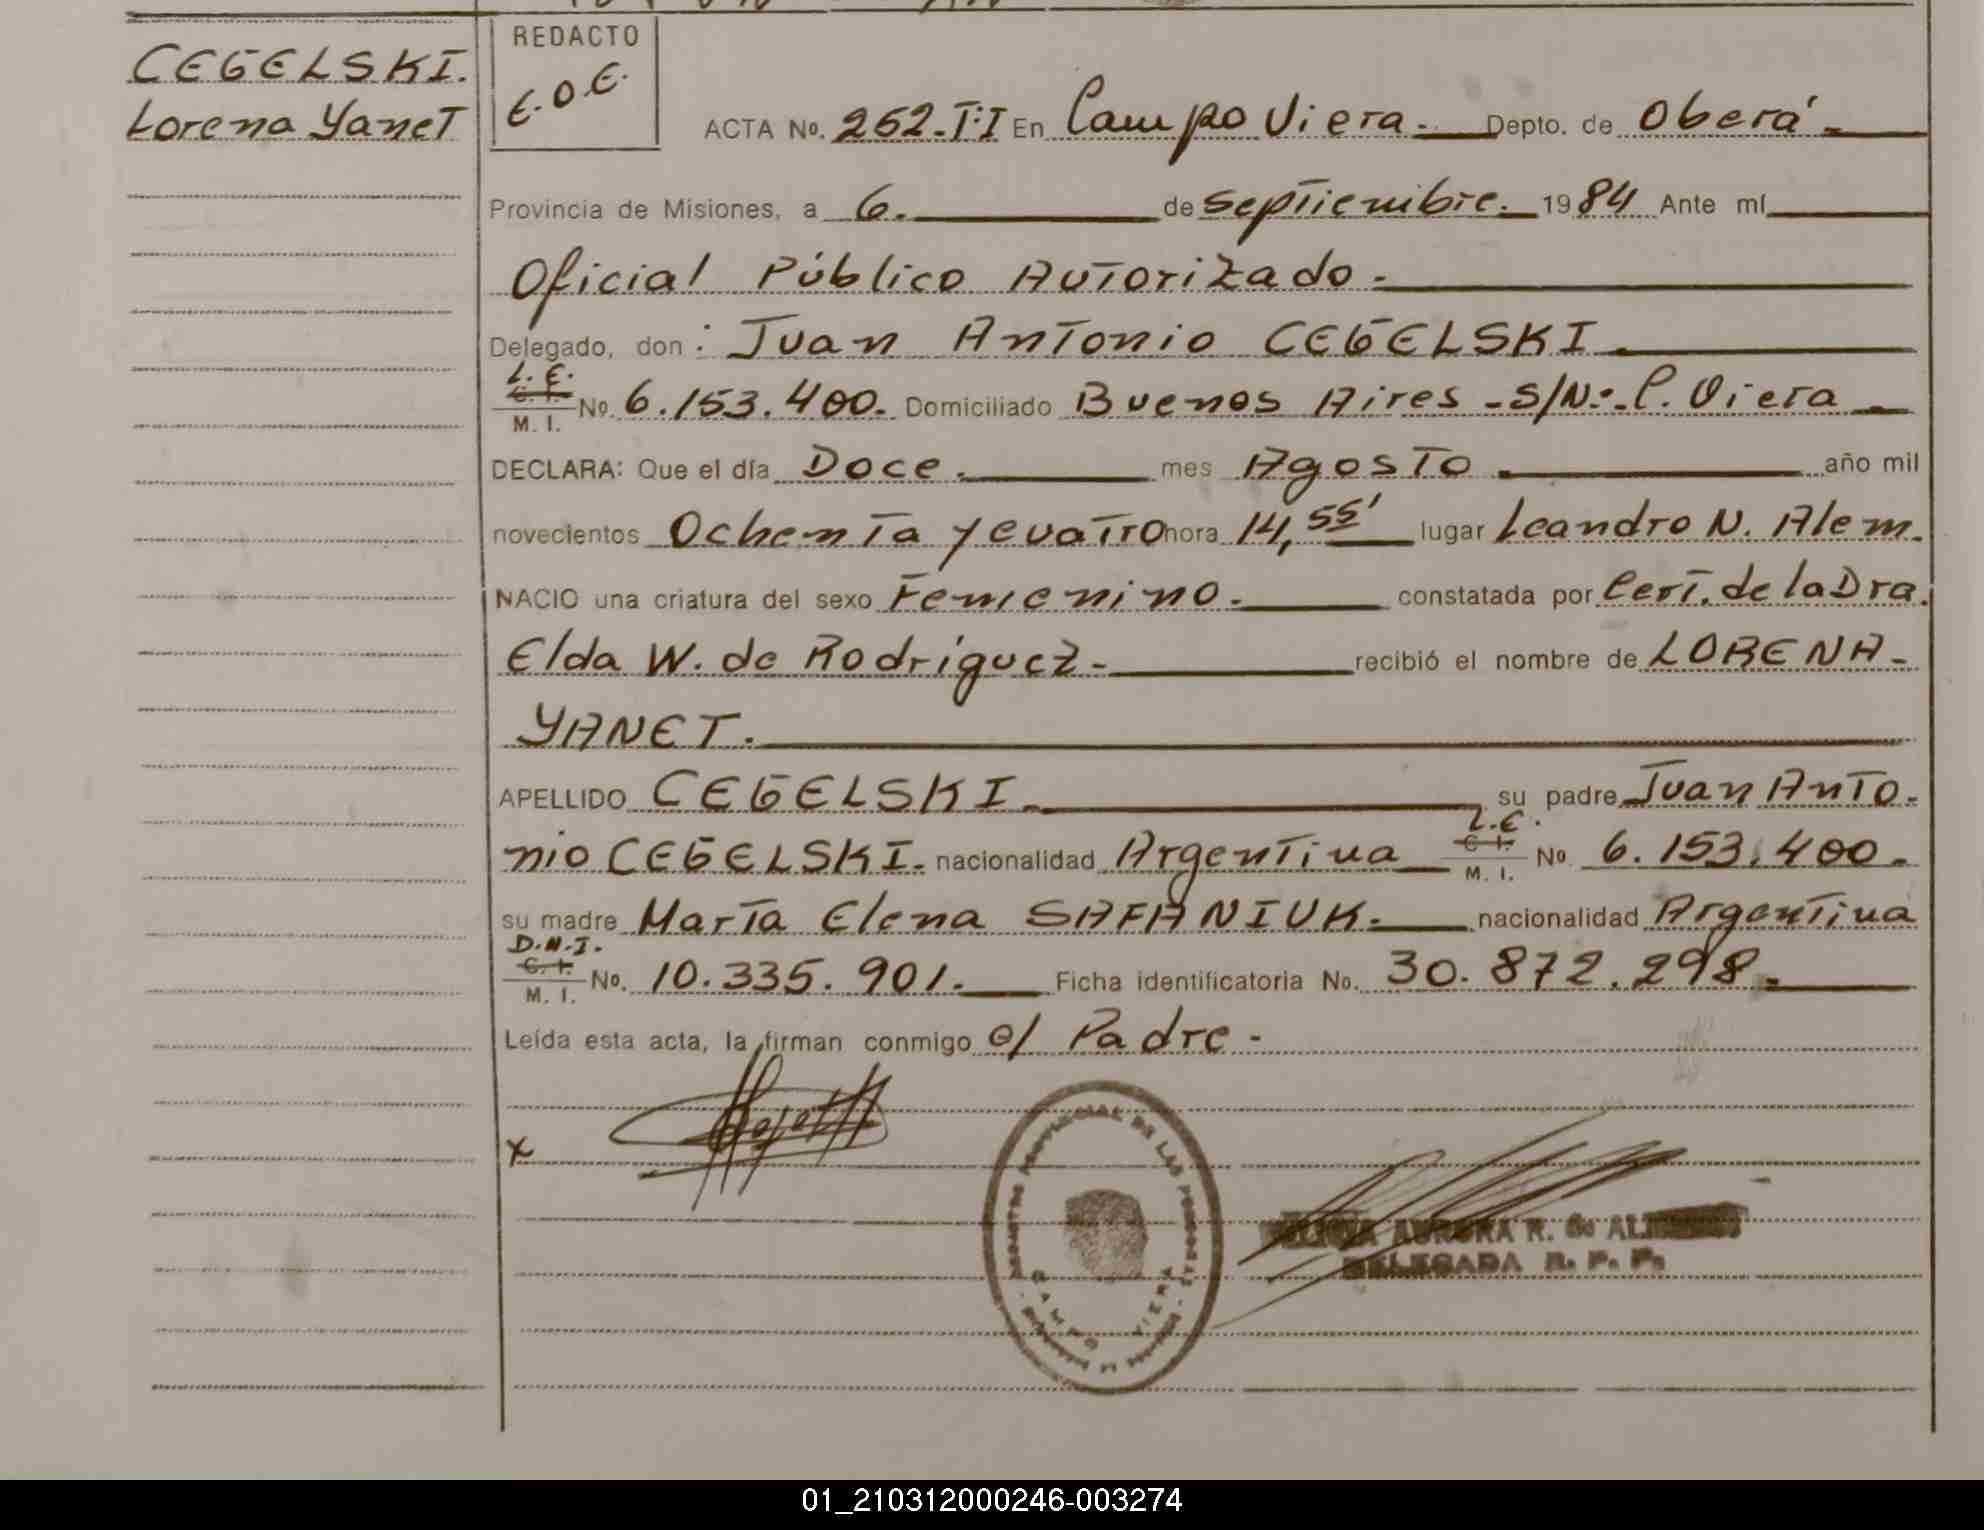 CEGELSKI.
Lorena Yanet
REDACTO
E.O.E.
ACTA No. 262.T:I En Campo Viera. Depto. de Oberá.
Provincia de Misiones, a 6. de septiembre. 1984 Ante mí
Oficial Público Autorizado.
Delegado, don: Juan Antonio CEGELSKI.
L.E.
C. I.
M. I.
No. 6.153.400. Domiciliado Buenos Aires - S/Nº. C. Viera
DECLARA: Que el día Doce. mes Agosto año mil
novecientos Ochenta y cuatro hora 14,55' lugar Leandro N. Alem.
NACIO una criatura del sexo Femenino. constatada por Cert. de la Dra.
Elda W. de Rodríguez. recibió el nombre de LORENA-
YANET.
APELLIDO CEGELSKI. su padre Juan Anto-
nio CEGELSKI. nacionalidad Argentina
L.E.
C. I.
M. I.
No 6.153.400.
su madre María Elena SAFANIUK. nacionalidad Argentina
D.N.I.
C. I.
M. I.
No. 10.335.901. Ficha identificatoria No. 30.872.298.
Leída esta acta, la firman conmigo el Padre.
x
PROVINCIAL DE LAS
CAMPO VIERA
AURORA R. de
DELEGADA R. P. P.
01_210312000246-003274